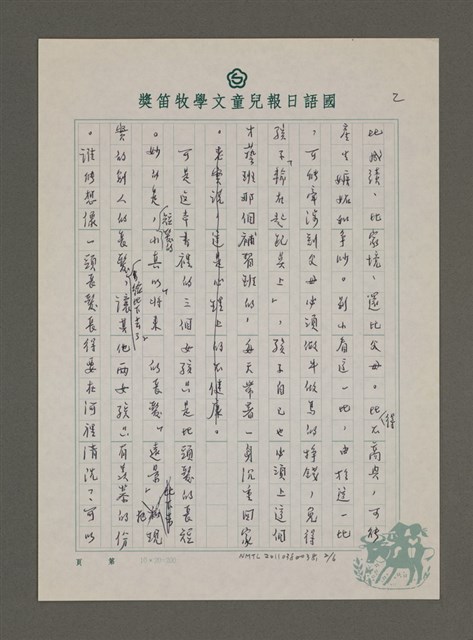 國語日報兒童文學牧笛獎
2
比成績、比家境、還比父母。比得不高興，可能
產生嫉妬和爭吵。別小看這一比，由於這一比
，可能牽涉到父母必須做牛做馬的掙錢，免得
孩子「輸在起跑點上」，孩子自己也必須上這個
才藝班那個補習班的，每天帶著一身沉重回家
。老實說，這是心理上的不健康。
可是這本書裡的三個女孩只是比頭髮的長短
。妙的是，短髮的小真以「將來」的長髮「遠景」
實的別人的長髮，給比下去了，讓其他兩女孩只有羨慕的份
。誰能想像一頭長髮長得要在河裡清洗？可以
第 頁
NMTL 2/6